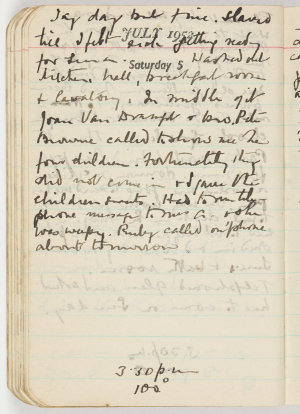 day but fine. Slaved
JULY 1952
till I felt sick getting ready
for
Saturday 5
Washed out
kitchen, hall, breakfast room
& lavatory. In middle of it
Joan Van & Mrs.
Browne called to show me the
four children. Fortunately they
did not come in & I gave the
children sweets. Had to
phone message to Mrs &
was weepy. Ruby called on phone
about tomorrow
3.30 p.m
100°